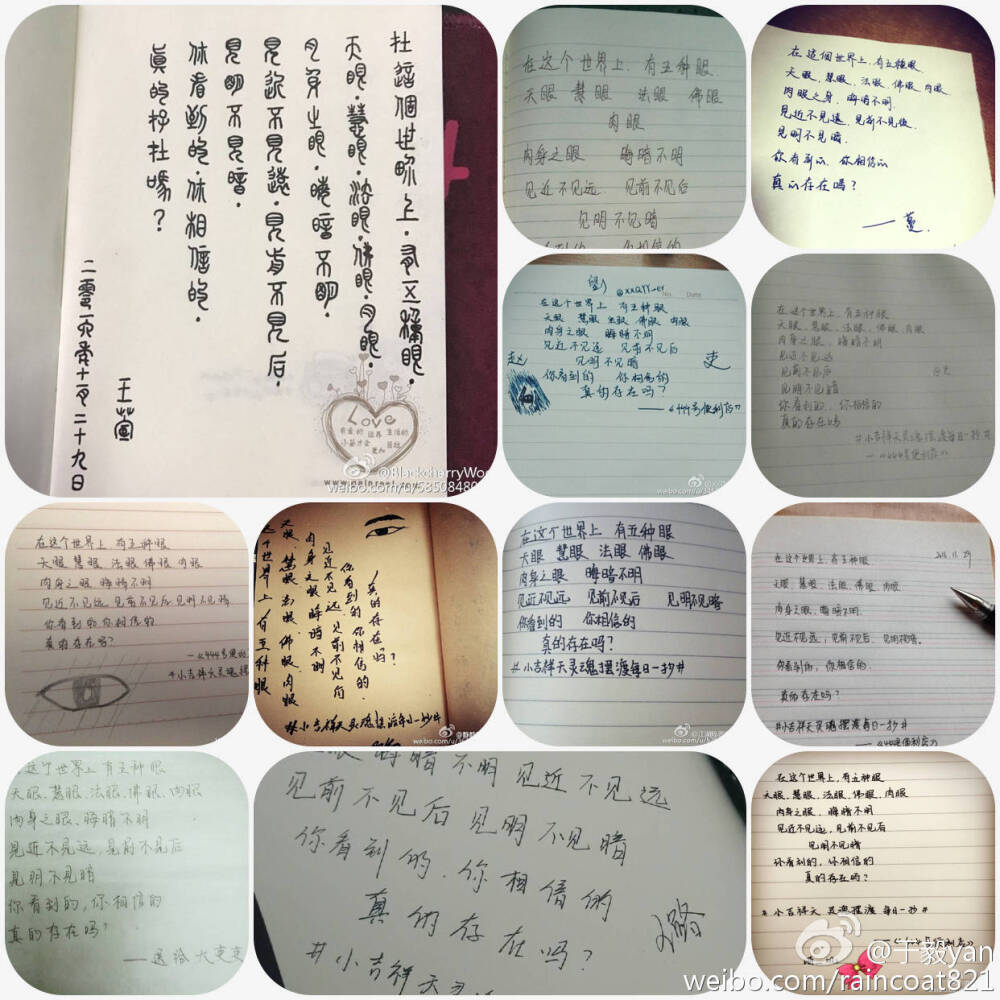 在這個世界上，有五種眼，
天眼，慧眼，法眼，佛眼，肉眼，
肉身之眼，晦暗不明，
見近不見遠，見前不見后，
見明不見暗，
你看到的，你相信的，
真的存在嗎？
二零一六年十一月二十九日
Love
有爱的
世界
生活的
www.painraet.com
@BlackcherryWoo
weibo.com/u/58508480
在这个世界上，有五种眼，
天眼 慧眼 法眼 佛眼
肉眼
肉身之眼 晦暗不明
见近不见远 见前不见后
见明不见暗
你相信的
在這個世界上，有五種眼
天眼，慧眼，法眼，佛眼，肉眼
肉眼之身，晦暗不明，
见近不见遠，见前不见後，
见明不见暗，
你看到的，你相信的
真的存在嗎？
No. Date
在这个世界上 有五种眼
天眼 慧眼 法眼 佛眼 肉眼
肉身之眼 晦暗不明
见近不见远 见前不见后
见明不见暗
你看到的 你相信的
真的存在吗？
——《444号便利店》
赵
吏
weibo.com/u/821
在这个世界上，有五种眼
天眼、慧眼、法眼、佛眼、肉眼
肉身之眼，晦暗不明
见近不见远
见前不见后
见明不见暗
你看到的，你相信的
真的存在吗
#小吉祥天灵魂摆渡每日一抄#
—《444号便利店》
在这个世界上 有五种眼
天眼 慧眼 法眼 佛眼 肉眼
肉身之眼 晦暗不明
见近不见远 见前不见后 见明不见暗
你看到的 你相信的
真的存在吗？
—《444号便利
#小吉祥天灵魂摆渡
这个世界上 有五种眼
天眼、慧眼、法眼、佛眼、肉眼
肉身之眼 晦暗不明
见近不见远 见前不见后
你看到的 你相信的
真的存在吗？
#小吉祥天灵魂摆渡每日一抄#
在这个世界上 有五种眼
天眼 慧眼 法眼 佛眼
肉身之眼 晦暗不明
见近不见远 见前不见后 见明不见暗
你看到的 你相信的
真的存在吗？
#小吉祥天灵魂摆渡每日一抄#
2016.11.29
在这个世界上，有五种眼
天眼，慧眼，法眼，佛眼，肉眼
肉身之眼，晦暗不明，
见近不见远，见前不见后，见明不见暗，
你看到的，你相信的，
真的存在吗？
#小吉祥天灵魂摆渡每日一抄#
——《444号便利店》
这个世界上有五种眼
天眼、慧眼、法眼、佛眼、肉眼
肉身之眼、晦暗不明
见近不见远 见前不见后
见明不见暗
你看到的，你相信的
真的存在吗？
——送给大吏吏
眼 晦暗不明 见近不见远
见前不见后 见明不见暗
你看到的，你相信的
真的存在吗？
#小吉祥天灵
在这个世界上，有五种眼
天眼、慧眼、法眼、佛眼、肉眼
肉身之眼，晦暗不明
见近不见远，见前不见后
见明不见暗
你看到的，你相信的
真的存在吗？
#小吉祥天 灵魂摆渡 每日一抄#
——《444号便利店》
@于毅yan
weibo.com/raincoat821